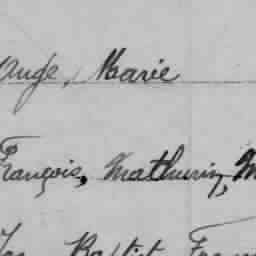 Ange, Marie
François, Mathurin, M
Jean Baptist Franç